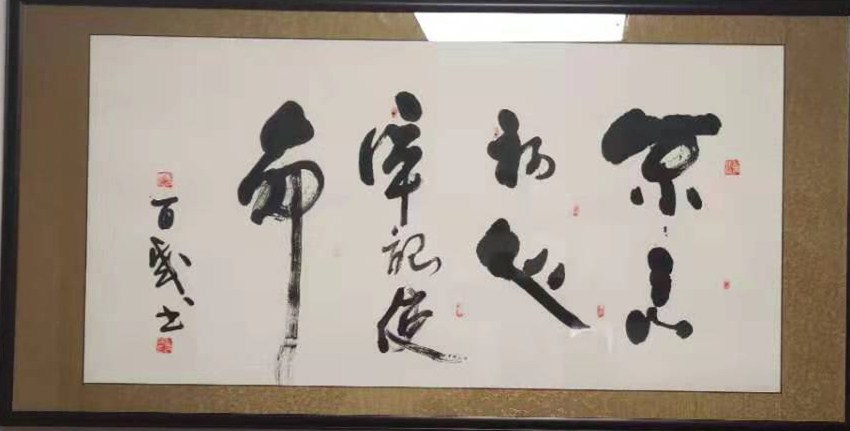 不忘
初心
牢記使
命
百成书